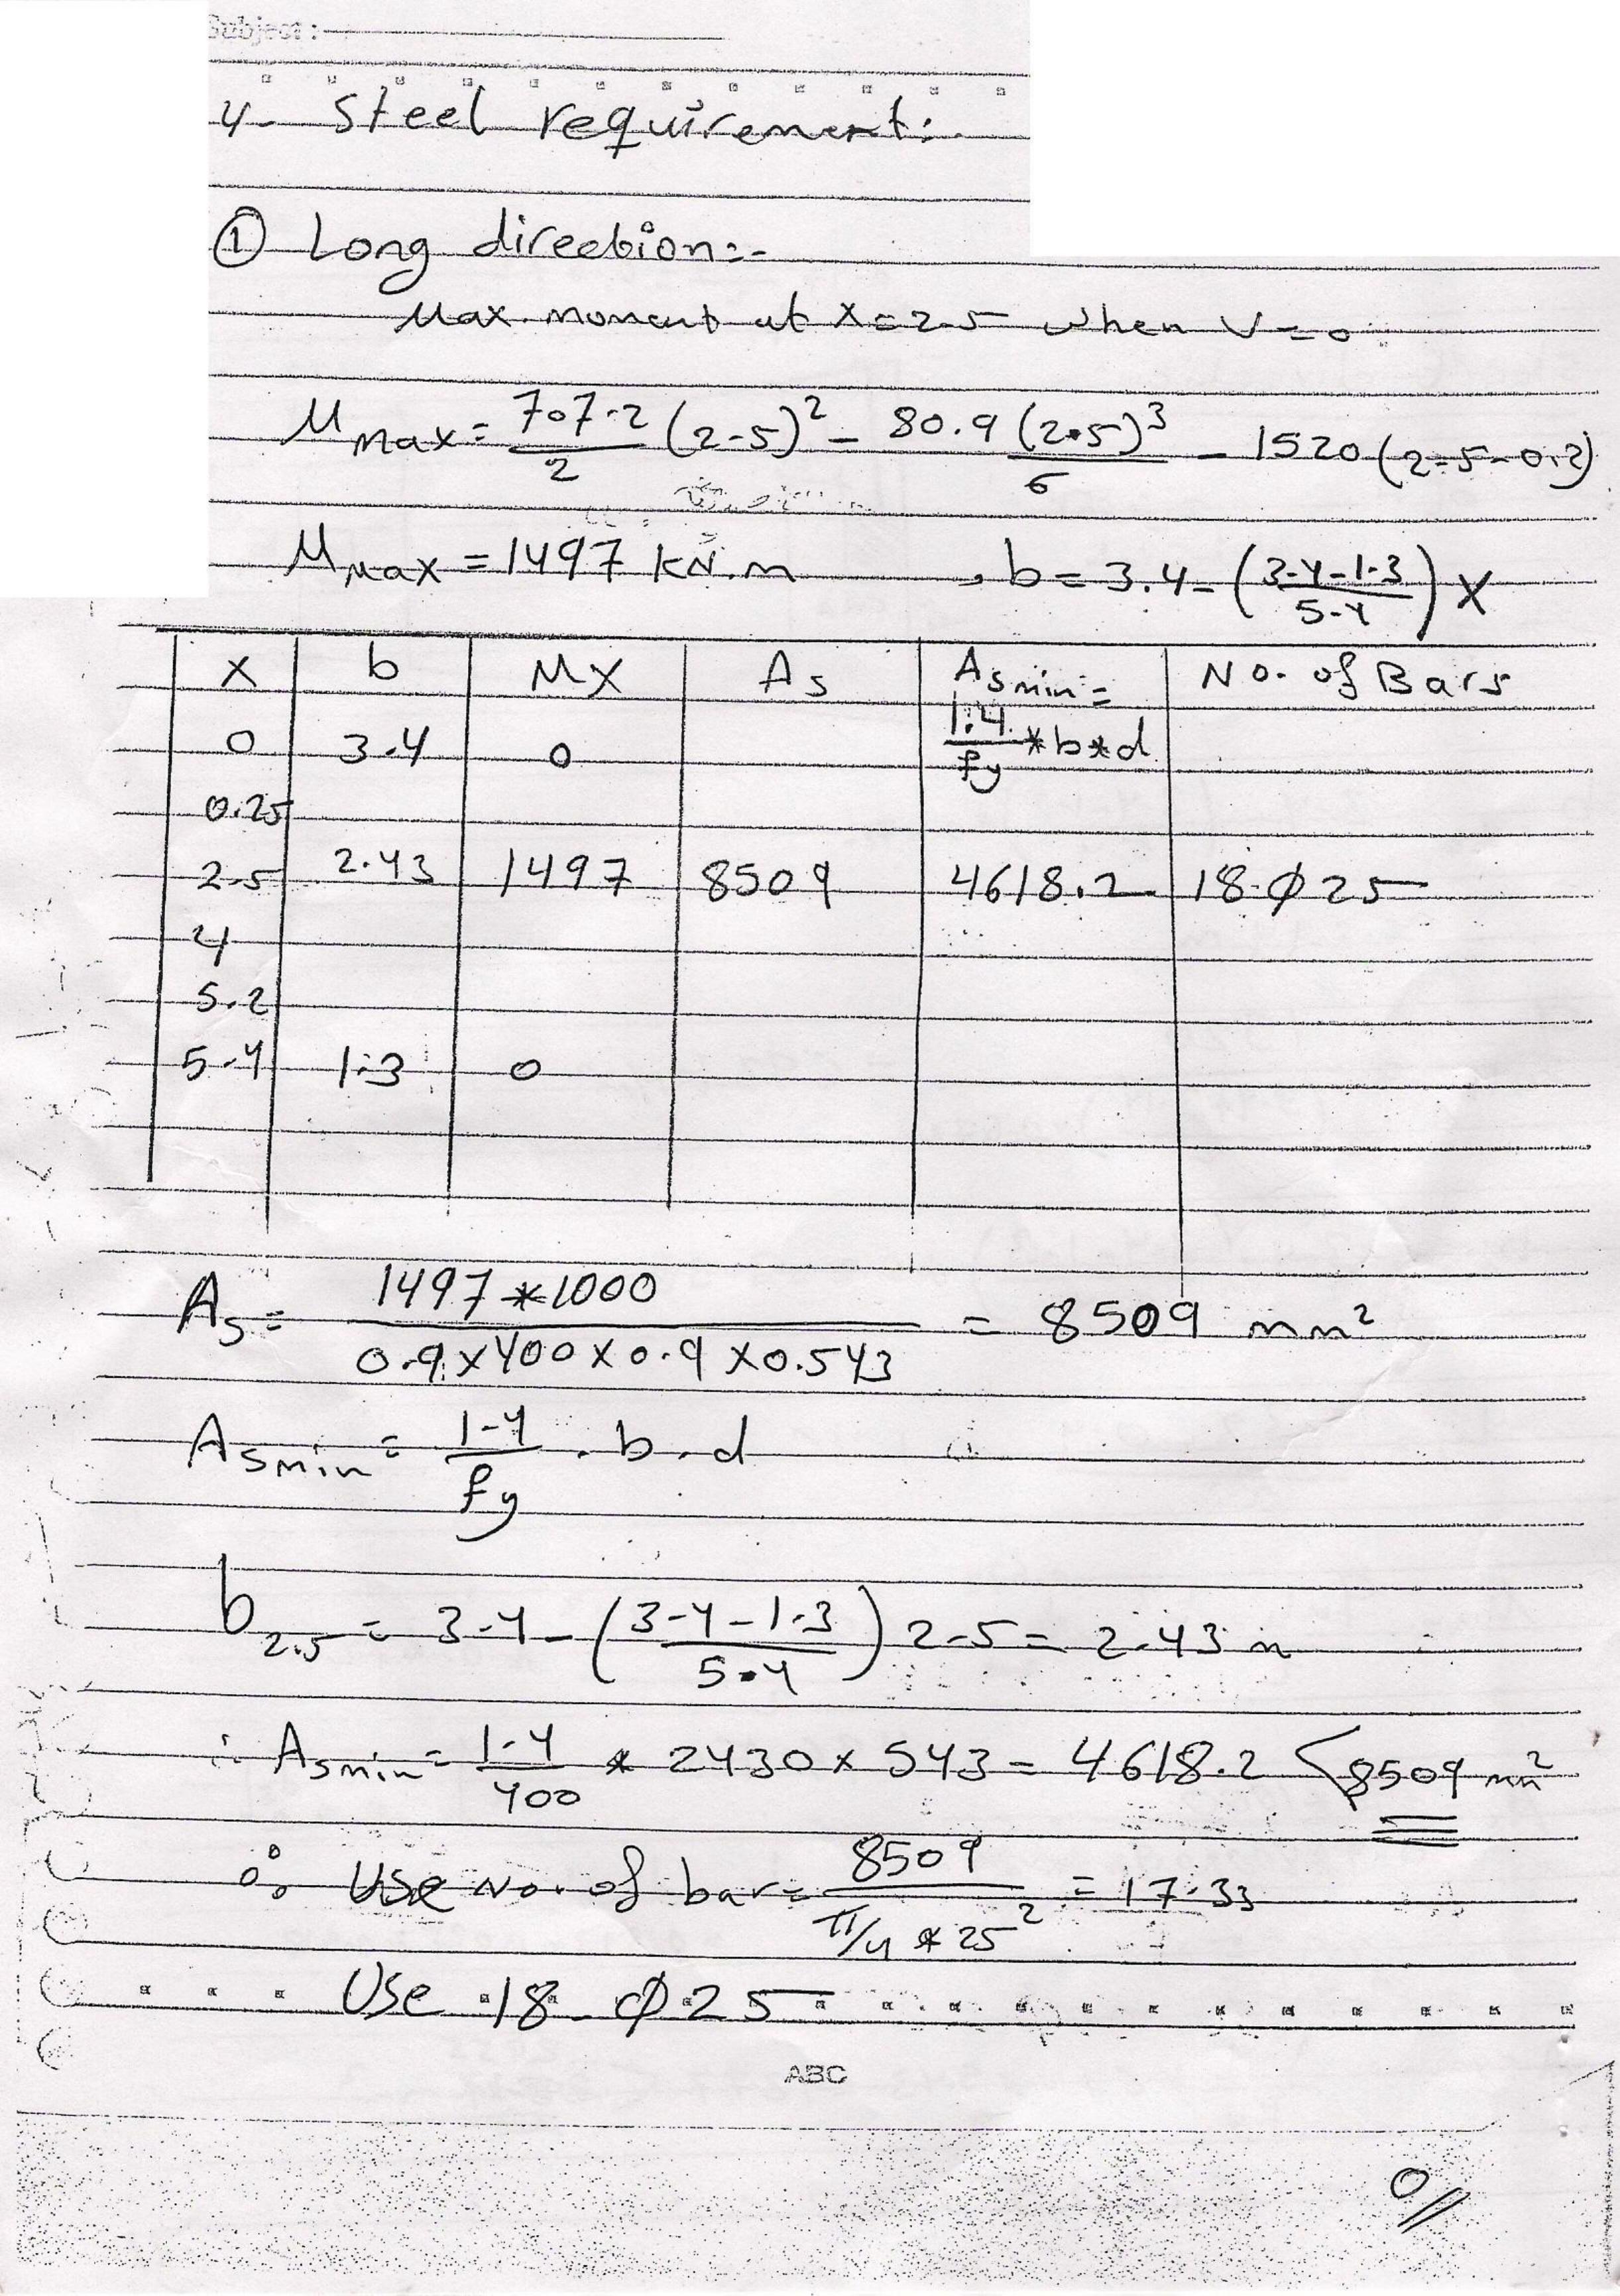 Subject :
4- Steel requirement:.
① Long direction:-
Max. moment at X=2.5 when V=0
M max = 707.2/2 (2.5)² - 80.9 (2.5)³/6 - 1520 (2.5-0.2)
M Max = 1497 kN.m , b = 3.4 - (3.4-1.3 / 5.4) X
X b MX As As min = 1.4/fy * b * d No. of Bars
0 3.4 0
0.25
2.5 2.43 1497 8509 4618.2 18 ø 25
4
5.2
5.4 1.3 0
As = 1497 * 1000 / 0.9 x 400 x 0.9 x 0.543 = 8509 mm²
As min = 1.4/fy . b . d
b 2.5 = 3.4 - (3.4-1.3 / 5.4) 2.5 = 2.43 m
∴ As min = 1.4/400 * 2430 x 543 = 4618.2 < 8509 mm²
∴ Use No. of bar = 8509 / π/4 * 25² = 17.33
Use 18 ø 25
ABC